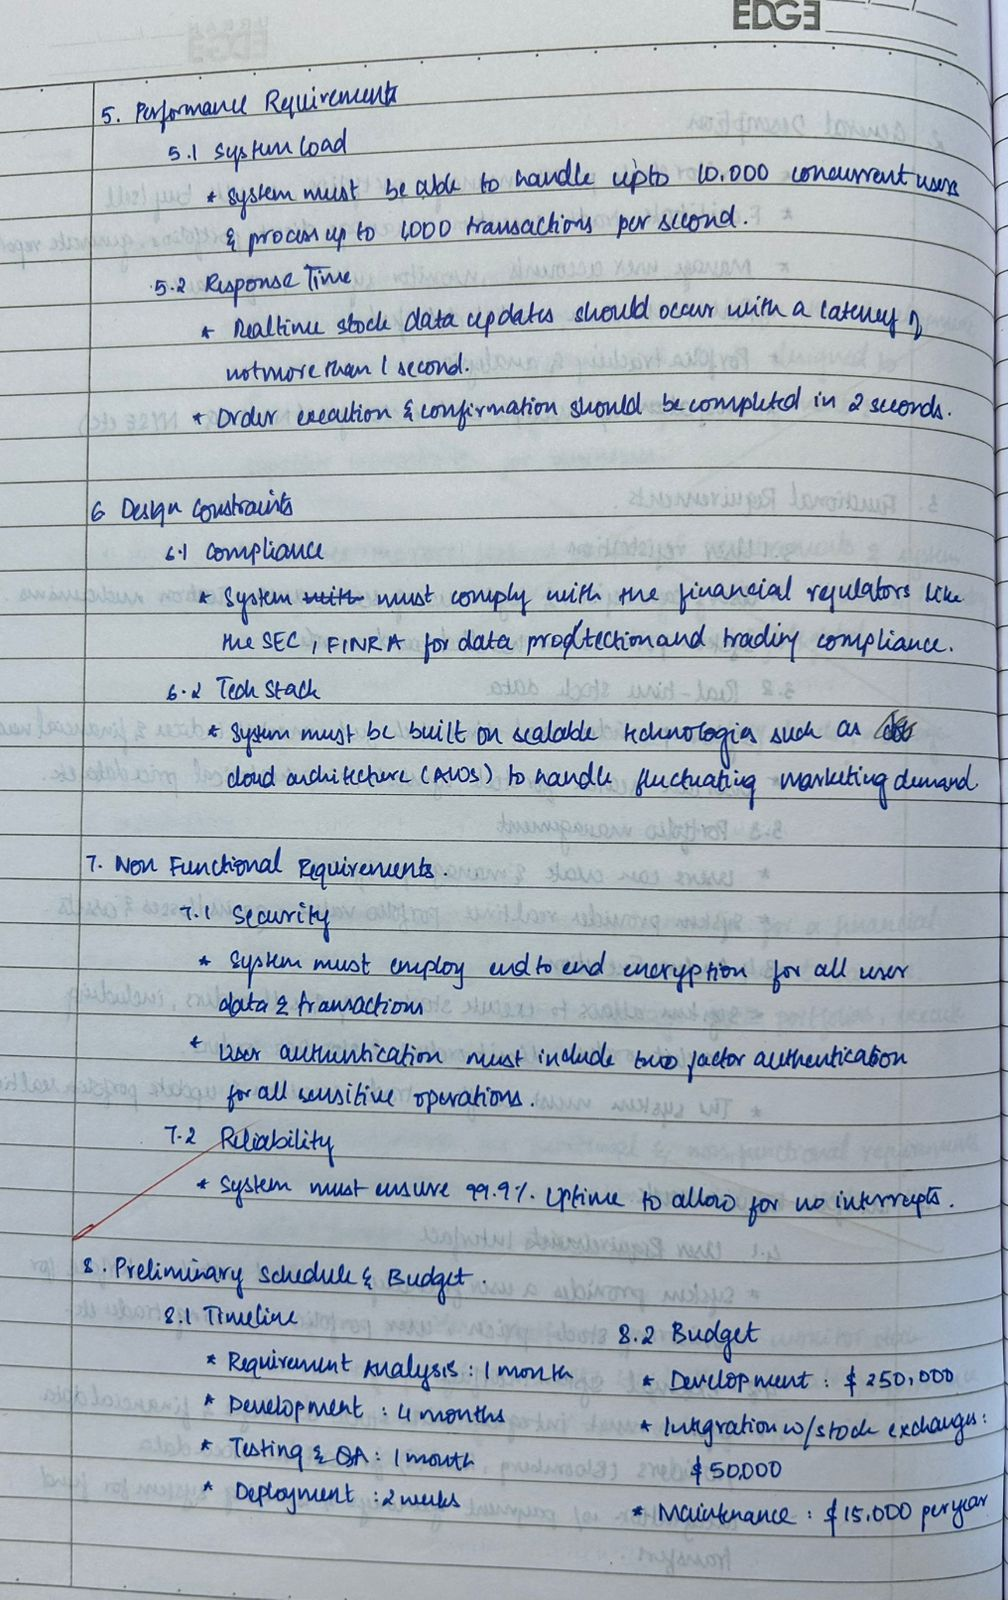 EDGE
5. Performance Requirements
5.1 System Load
* System must be able to handle upto 10.000 concurrent users
& process up to 1,000 transactions per second.
5.2 Response Time
* Realtime stock data updates should occur with a latency of
not more than 1 second.
* Order execution & confirmation should be completed in 2 seconds.
6 Design Constraints
6.1 Compliance
* System with must comply with the financial regulators like
the SEC, FINRA for data protection and trading compliance.
6.2 Tech Stack
* System must be built on scalable technologies such as
cloud architecture (AWS) to handle fluctuating marketing demand.
7. Non Functional Requirements.
7.1 Security
* System must employ end to end encryption for all user
data & transactions
* User authentication must include two factor authentication
for all sensitive operations.
7.2 Reliability
* System must ensure 99.9%. Uptime to allow for no interrupts.
8. Preliminary Schedule & Budget.
8.1 Timeline
* Requirement Analysis : 1 month
* Development : 4 months
* Testing & QA : 1 month
* Deployment : 2 weeks
8.2 Budget
* Development : $ 250,000
* Integration w/stock exchanges :
$ 50,000
* Maintenance : $ 15,000 per year